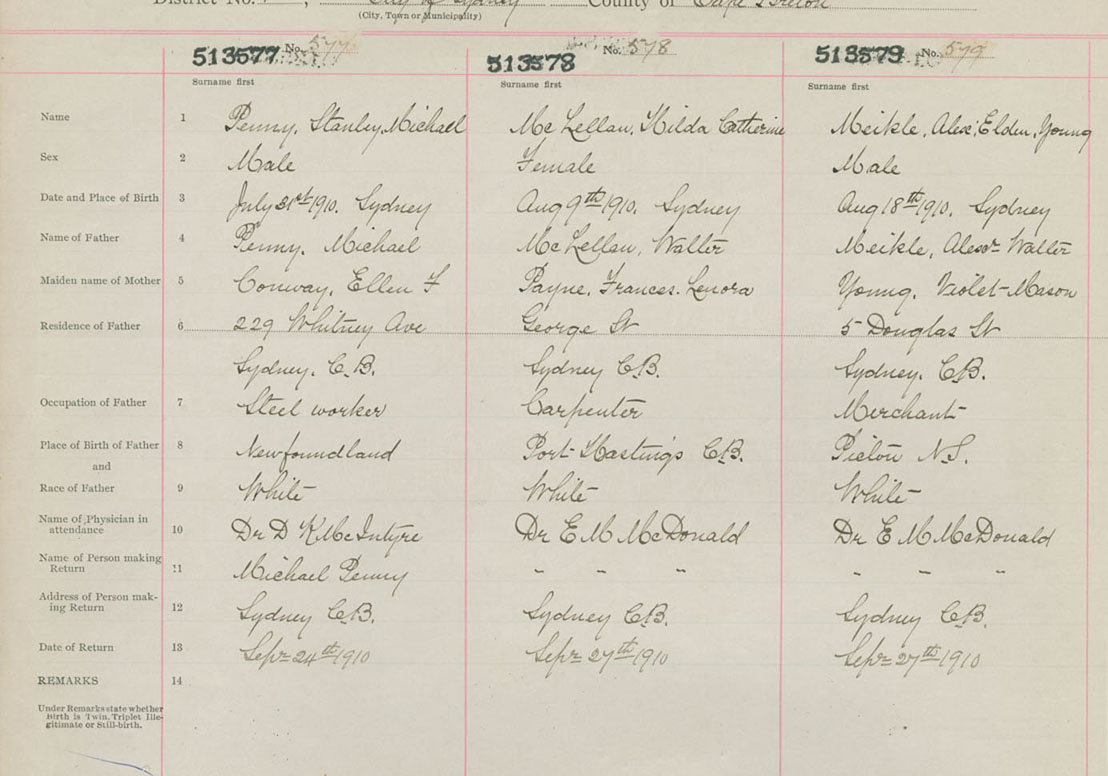 District No. , City of Sydney County of Cape Breton
(City, Town or Municipality)
513577 No. 577 513578 No. 578 513579 No. 579
Surname first Surname first Surname first
Name 1 Penny, Stanley, Michael Mc Lellan, Hilda Catherine Meikle, Alex, Elden, Young
Sex 2 Male Female Male
Date and Place of Birth 3 July 31st 1910. Sydney Aug 9th 1910. Sydney Aug 18th 1910. Sydney
Name of Father 4 Penny, Michael Mc Lellan, Walter Meikle, Alexr Walter
Maiden name of Mother 5 Conway, Ellen F Payne, Frances. Lenora Young, Violet-Mason
Residence of Father 6 229 Whitney Ave George St 5 Douglas St
Sydney. C.B. Sydney C.B. Sydney. C.B.
Occupation of Father 7 Steel worker Carpenter Merchant
Place of Birth of Father 8 Newfoundland Port Hastings C.B. Pictou N.S.
and
Race of Father 9 White White White
Name of Physician in
attendance 10 Dr D K McIntyre Dr E M McDonald Dr E M McDonald
Name of Person making
Return 11 Michael Penny " " " " " "
Address of Person mak-
ing Return 12 Sydney C.B. Sydney C.B. Sydney C.B.
Date of Return 13 Sepr 24th 1910 Sepr 27th 1910 Sepr 27th 1910
REMARKS 14
Under Remarks state whether
Birth is Twin, Triplet Ille-
gitimate or Still-birth.